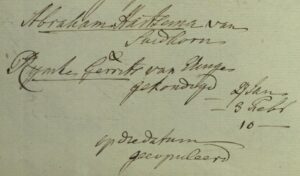 Abraham Harkema van
Suidhorn
&
Gerrits van
gekondigd 27 Jan
3 Febr
10 —
op die datum
gecopuleerd